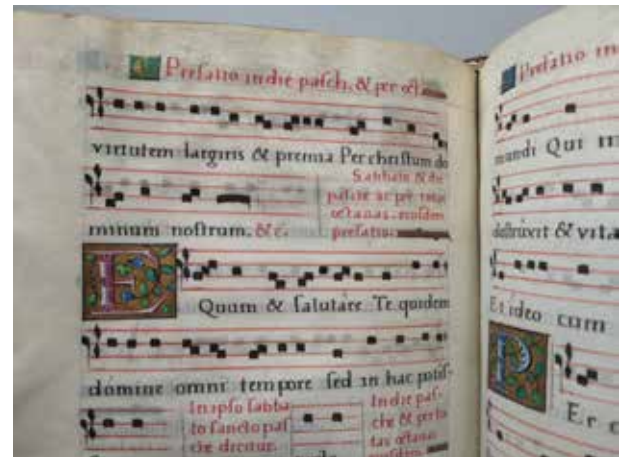 Prefatio in die pasch. & per oct.
virtutem largiris & premia Per christum do
Sabbato &
minum nostrum. &c. prefatio.
E Quum & salutare Te quidem
domine omni tempore sed in hac potis-
In ipso sabba
to sancto pas
che dicitur.
In die pas-
che & per to
tas octanas
Prefatio in
mundi Qui m
destruxit & vita
Et ideo cum
P Er